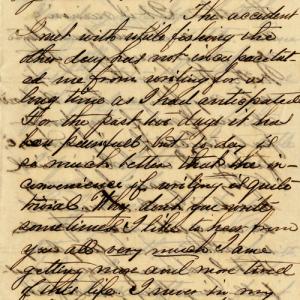 The accident
I met with while fastening the
other day has not incapacitat
ed me from writing for as
long time as I had anticipated
For the past two days it has
been painful but to day is
so much better that the in
convenience of writing is quite
trivial. Why dont you write
sometimes I like to hear from
you all very much I am
getting more and more tired
of this life. I never in my